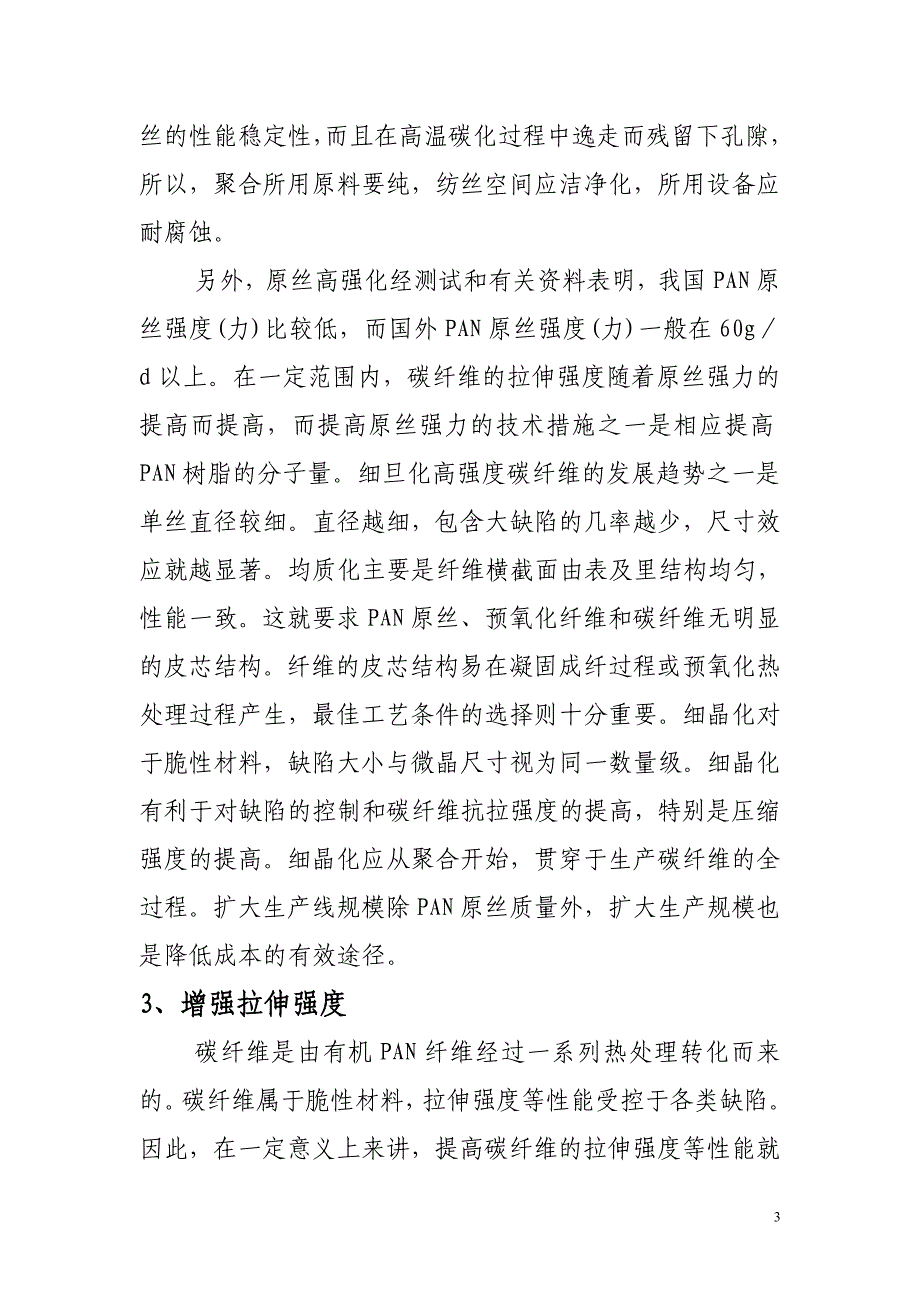 丝的性能稳定性,而且在高温碳化过程中逸走而残留下孔隙,
所以，聚合所用原料要纯，纺丝空间应洁净化，所用设备应
耐腐蚀。
另外，原丝高强化经测试和有关资料表明，我国 PAN 原
丝强度(力)比较低，而国外 PAN 原丝强度(力)一般在 60g／
d 以上。在一定范围内，碳纤维的拉伸强度随着原丝强力的
提高而提高，而提高原丝强力的技术措施之一是相应提高
PAN 树脂的分子量。细旦化高强度碳纤维的发展趋势之一是
单丝直径较细。直径越细，包含大缺陷的几率越少，尺寸效
应就越显著。均质化主要是纤维横截面由表及里结构均匀，
性能一致。这就要求 PAN 原丝、预氧化纤维和碳纤维无明显
的皮芯结构。纤维的皮芯结构易在凝固成纤过程或预氧化热
处理过程产生，最佳工艺条件的选择则十分重要。细晶化对
于脆性材料，缺陷大小与微晶尺寸视为同一数量级。细晶化
有利于对缺陷的控制和碳纤维抗拉强度的提高，特别是压缩
强度的提高。细晶化应从聚合开始，贯穿于生产碳纤维的全
过程。扩大生产线规模除 PAN 原丝质量外，扩大生产规模也
是降低成本的有效途径。
3、增强拉伸强度
碳纤维是由有机 PAN 纤维经过一系列热处理转化而来
的。碳纤维属于脆性材料,拉伸强度等性能受控于各类缺陷。
因此，在一定意义上来讲，提高碳纤维的拉伸强度等性能就
3